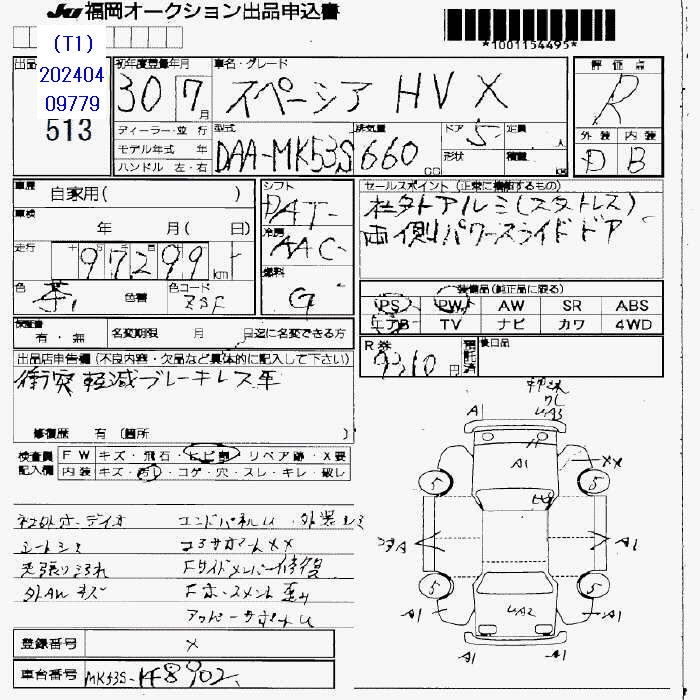 JU 福岡オークション出品申込書
*1001154495*
(T1)
202404
09779
513
出品
初年度登録年月
30 7 月
車名・グレード
スペーシア HV X
評価点
R
外装 内装
D B
ディーラー・並行
モデル年式 年
ハンドル 左・右
型式
DAA-MK53S
排気量
660 CC
ドア
5
形状
定員
人
積載
kg
車歴
自家用( )
車検
年 月( 日)
走行
97299 km
色
茶
色替
色コード
ZSF
シフト
DAT
冷房
AAC
燃料
G
セールスポイント (正常に機能するもの)
社外アルミ(スタットレス)
両側パワースライドドア
装備品(純正品に限る)
PS PW AW SR ABS
エアB TV ナビ カワ 4WD
保証書
有・無
名変期限 月 日迄に名変できる方
R券
9310 円
預託済
後日品
出品店申告欄 (不良内容・欠品など具体的に記入して下さい)
衝突軽減ブレーキレス車
修復歴 有 (箇所 )
検査員
記入欄
FW キズ・飛石・ヒビ割・リペア跡・X要
内装 キズ・汚レ・コゲ・穴・スレ・キレ・破レ
社外オーディオ
エンドパネルU
シートシミ
コアサポートXX
天張り汚れ
Fサイドメンバー修復
外AWキズ
アッパーサポートU
登録番号
X
車台番号
MK53S-
A1
UA3
A1
XX
5
5
A1
5
5
A1
UA2
A1
A1
A1